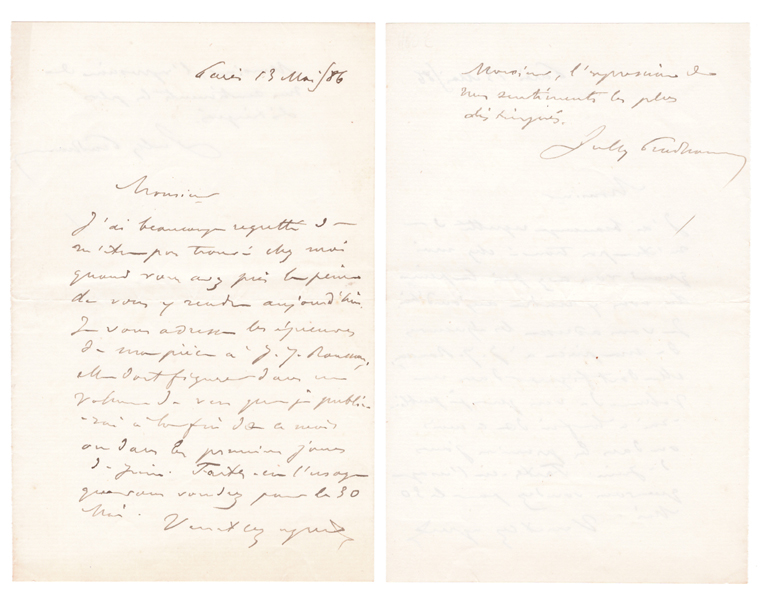 Paris 13 Mai/86
Monsieur
J'ai beaucoup regretté de
m'être pas trouvé chez moi
quand vous avez pris la peine
de vous y rendre aujourd'hui.
Je vous adresse les épreuves
de ma pièce à J. J. Rousseau,
elle doit figurer dans un
volume de vers que je publie-
rai à la fin de ce mois
ou dans les premiers jours
de Juin. Faites-en l'usage
que vous voudrez pour le 30
Mai.
Veuillez agréer,
Monsieur, l'expression de
mes sentiments les plus
distingués.
Sully Prudhomme